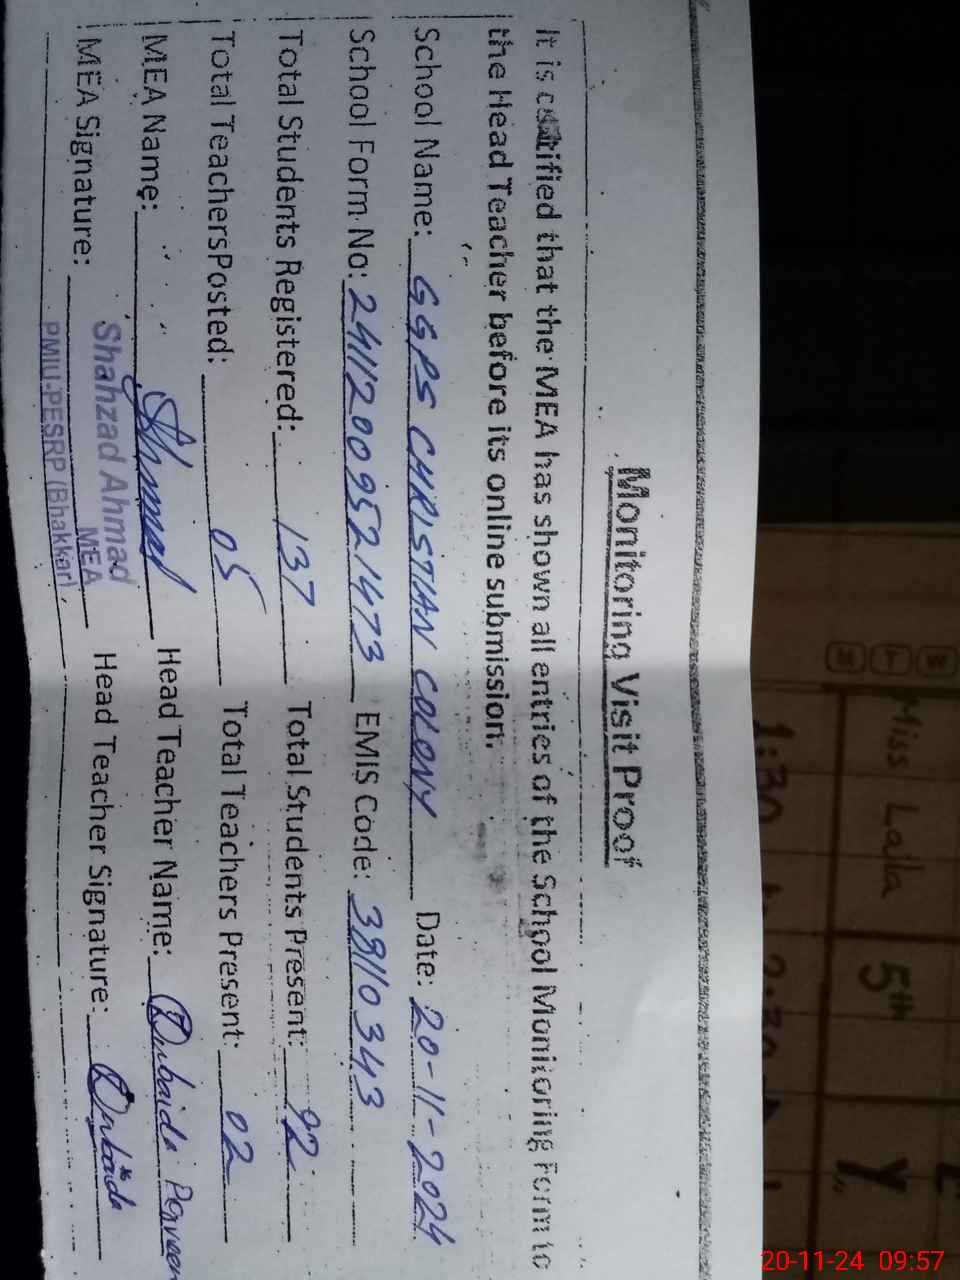 Monitoring Visit Proof
It is certified that the MEA has shown all entries of the School Monitoring Form to
the Head Teacher before its online submission.
School Name: GGPS CHRISTIAN COLONY Date: 20-11-2024
School Form No: 24112009521473 EMIS Code: 38110343
Total Students Registered: 137 Total Students Present: 92
Total TeachersPosted: 05 Total Teachers Present: 02
MEA Name: Ahmad Head Teacher Name: Perveen
MEA Signature: Head Teacher Signature:
Shahzad Ahmad
MEA
PMIU-PESRP (Bhakkar)
Miss Laila 5th
1:30 2:30
20-11-24 09:57